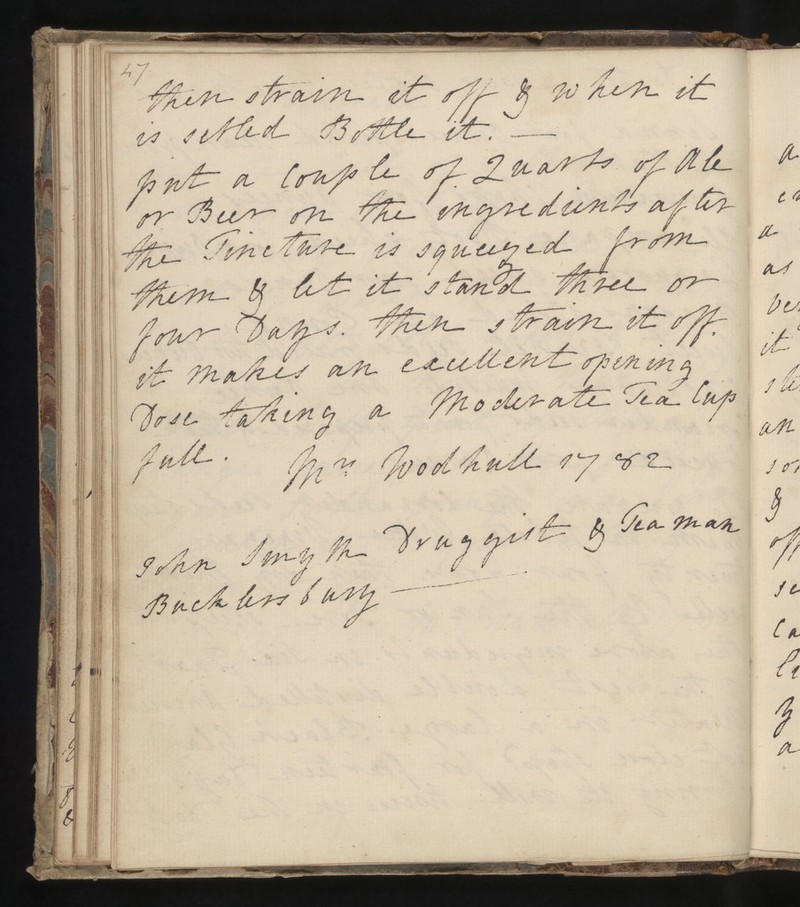 47
then strain it off & when it
is setled Bottle it. —
put a Couple of Quarts of Ale
or Beer on the ingredients after
the Tincture is squeezed from
them & let it stand three or
four Days. then strain it off.
it makes an excellent opening
Dose taking a Moderate Tea Cup
full. Mrs Wodhull 1782
John Smyth Druggist & Tea man
Bucklersbury —